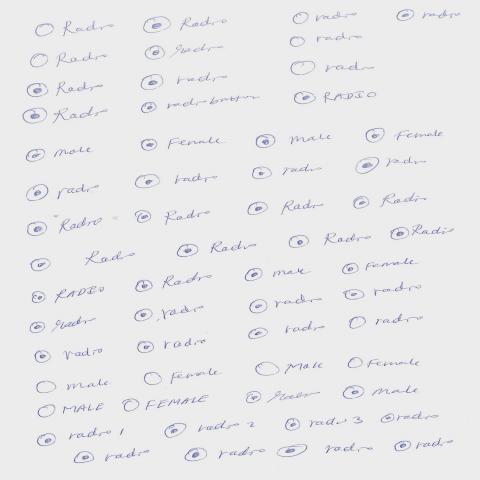 Radio Radio radio radio
Radio Radio radio
Radio radio radio
Radio radio button RADIO
male Female male Female
radio radio radio radio
"Radio" Radio Radio Radio
Radio Radio Radio Radio
RADIO Radio male Female
Radio radio radio radio
radio radio radio radio
male Female Male Female
MALE FEMALE male
radio 1 radio 2 radio 3 radio
radio radio radio radio